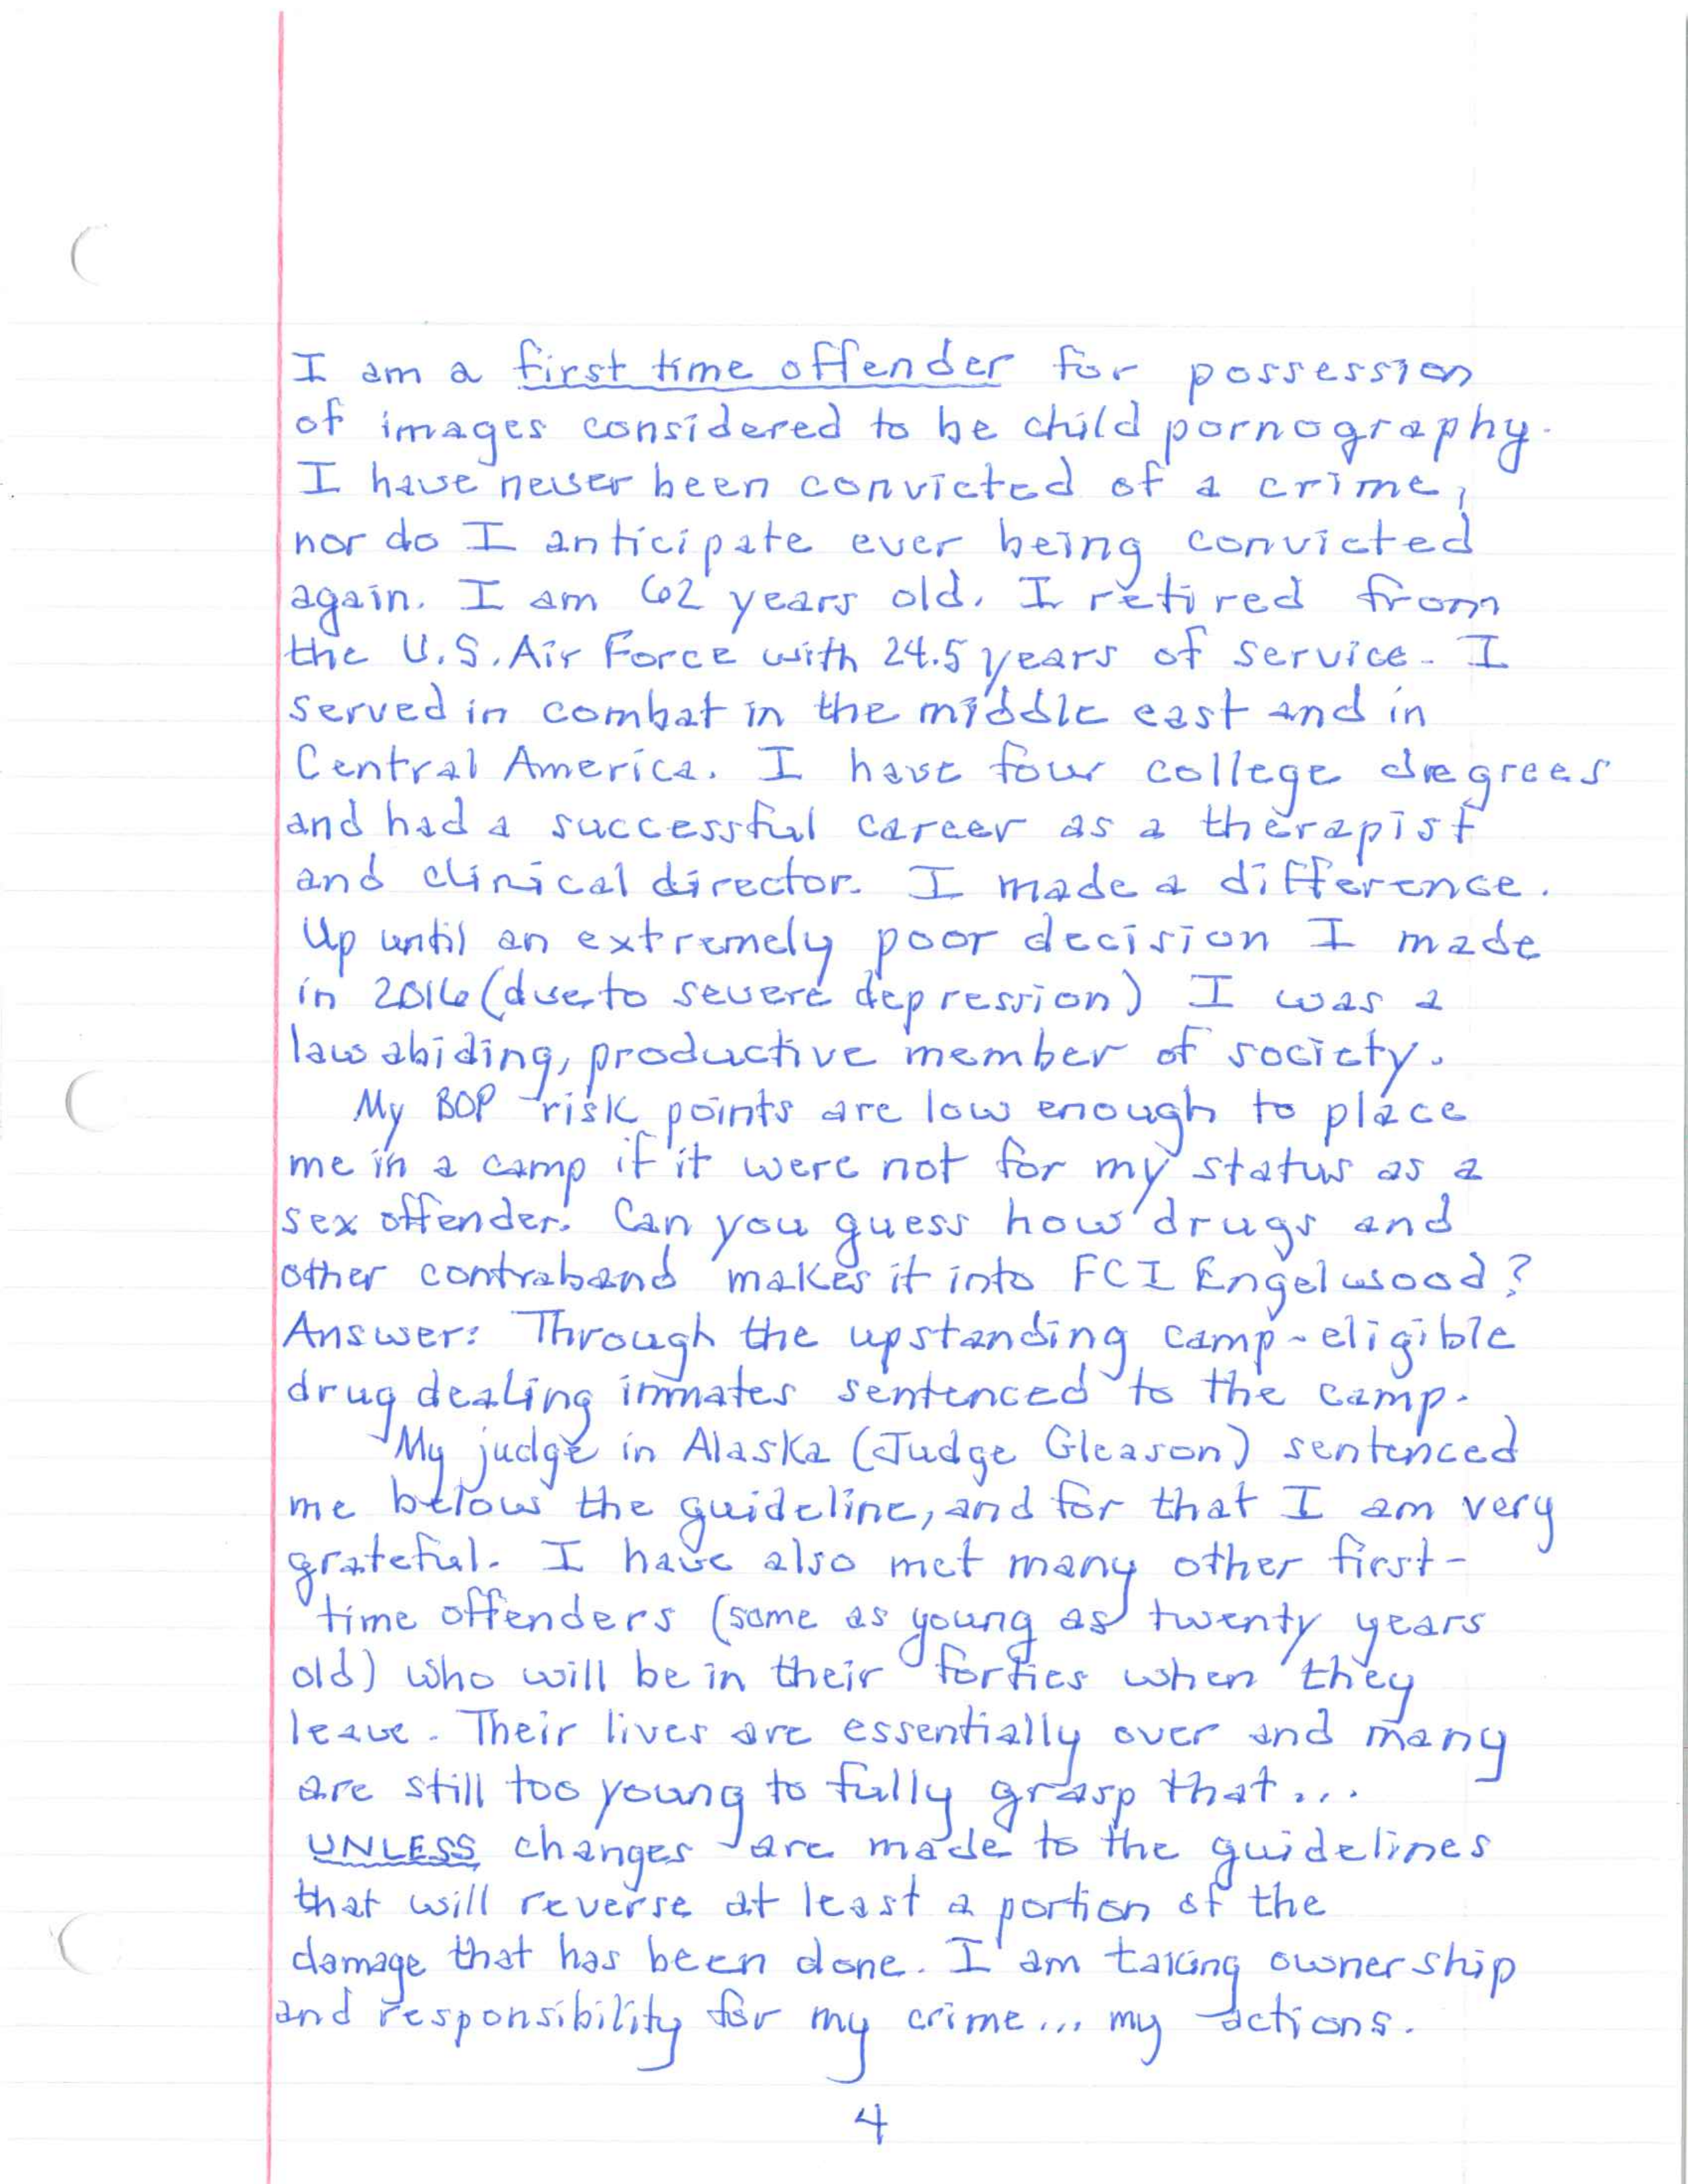 I am a first time offender for possession
of images considered to be child pornography.
I have never been convicted of a crime,
nor do I anticipate ever being convicted
again. I am 62 years old. I retired from
the U.S. Air Force with 24.5 years of service. I
served in combat in the middle east and in
Central America. I have four college degrees
and had a successful career as a therapist
and clinical director. I made a difference.
Up until an extremely poor decision I made
in 2016 (due to severe depression) I was a
law abiding, productive member of society.
My BOP risk points are low enough to place
me in a camp if it were not for my status as a
sex offender. Can you guess how drugs and
other contraband makes it into FCI Engelwood?
Answer: Through the upstanding camp-eligible
drug dealing inmates sentenced to the camp.
My judge in Alaska (Judge Gleason) sentenced
me below the guideline, and for that I am very
grateful. I have also met many other first-
time offenders (some as young as twenty years
old) who will be in their forties when they
leave. Their lives are essentially over and many
are still too young to fully grasp that...
UNLESS changes are made to the guidelines
that will reverse at least a portion of the
damage that has been done. I am taking ownership
and responsibility for my crime... my actions.
4